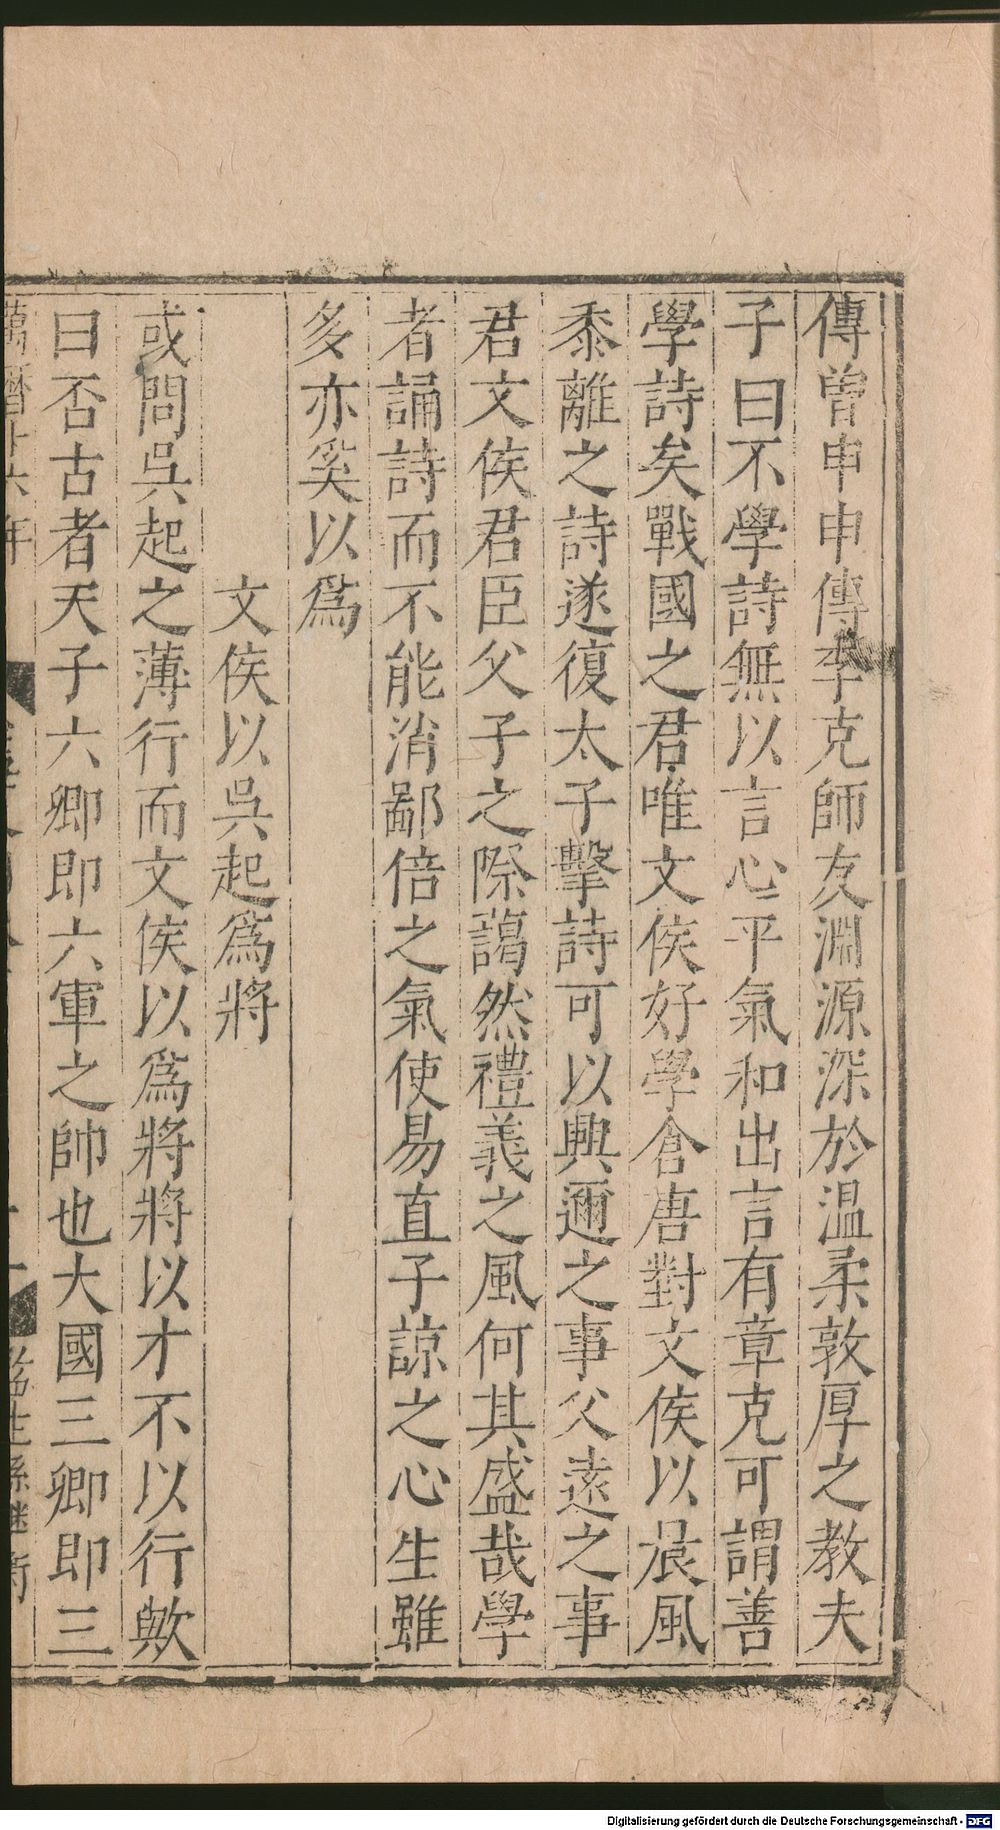 傳曾申申傳李克師友淵源深於温柔敦厚之教夫
子曰不學詩無以言心平氣和出言有章克可謂善
學詩矣戰國之君唯文侯好學倉唐對文侯以晨風
黍離之詩遂復太子擊詩可以興邇之事父遠之事
君文侯君臣父子之際藹然禮義之風何其盛哉學
者誦詩而不能消鄙倍之氣使易直子諒之心生雖
多亦奚以爲
文侯以吳起爲將
或問吳起之薄行而文侯以爲將將以才不以行歟
曰否古者天子六卿即六軍之帥也大國三卿即三
萬曆十六年
Digitalisierung gefördert durch die Deutsche Forschungsgemeinschaft - DFG